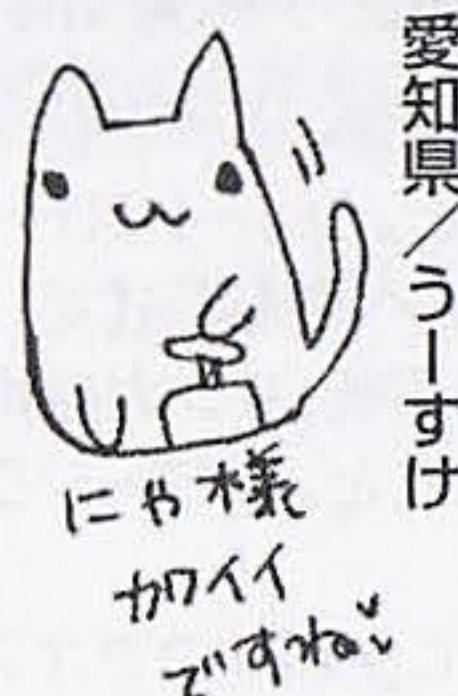 愛知県／うーすけ
にゃ様
カワイイ
ですね